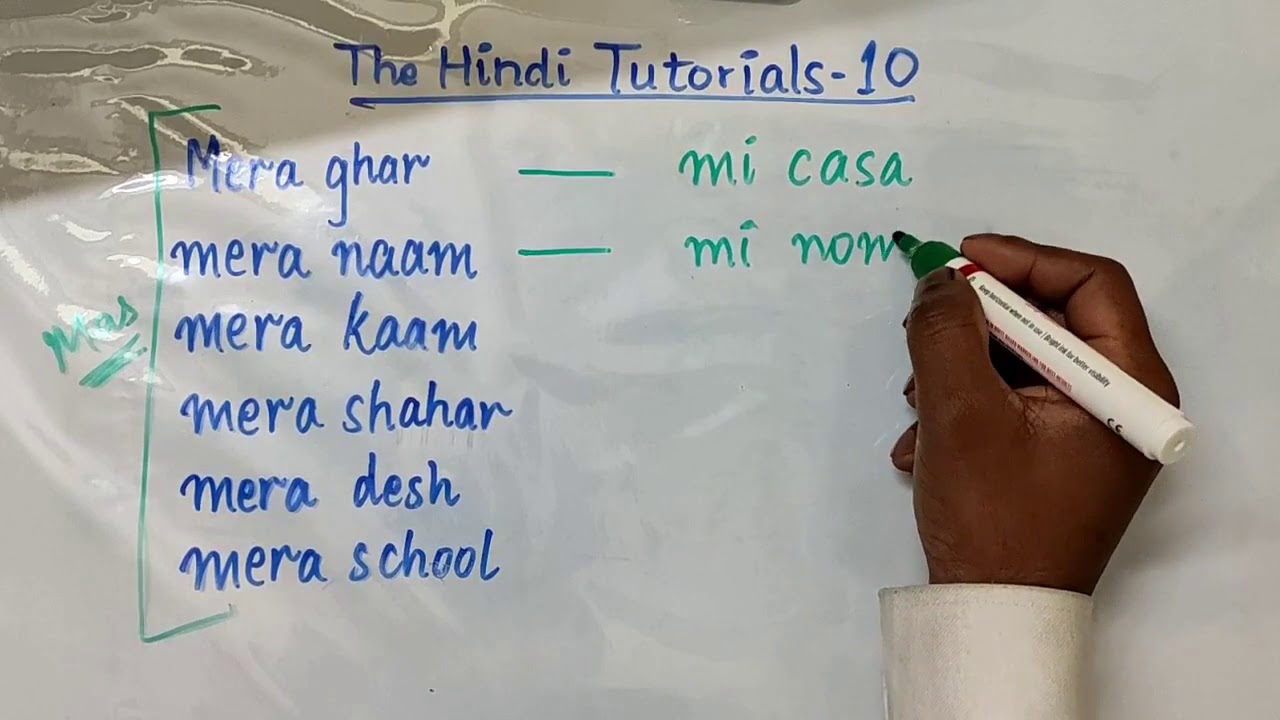 The Hindi Tutorials-10
Mera ghar — mi casa
mera naam — mi nom
Mas
mera kaam
mera shahar
mera desh
mera school